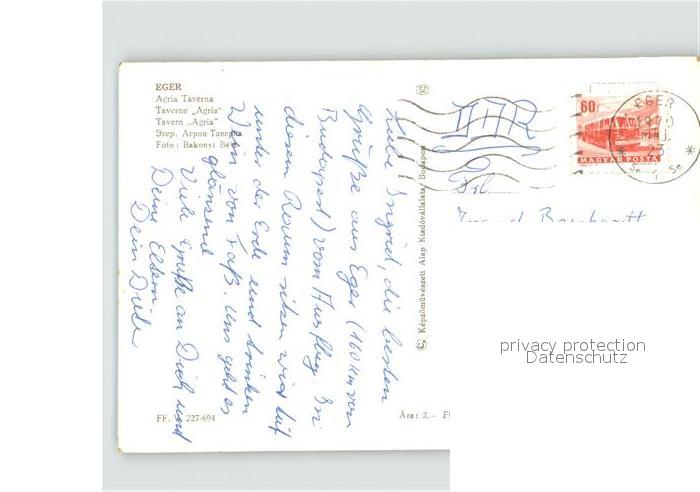 EGER
Agria Taverna
Taverne „Agria"
Tavern „Agria"
Эгер. Агриа
Foto: Bakonyi Béla
Liebe Ingrid, die besten
Grüße aus Eger (160 km von
Budapest) vom Ausflug. In
diesem Raum sitzen wir tief
unter der Erde und trinken
Wein von Faß. Uns geht es
glänzend
Viele Grüße an Dich und
Deine Eltern
Dein Dieter
FF. V. 227-694
Képzőművészeti Alap Kiadóvállalata, Budapest
Ára: 2.– F
60f
MAGYAR POSTA
EGER
23
privacy protection
Datenschutz